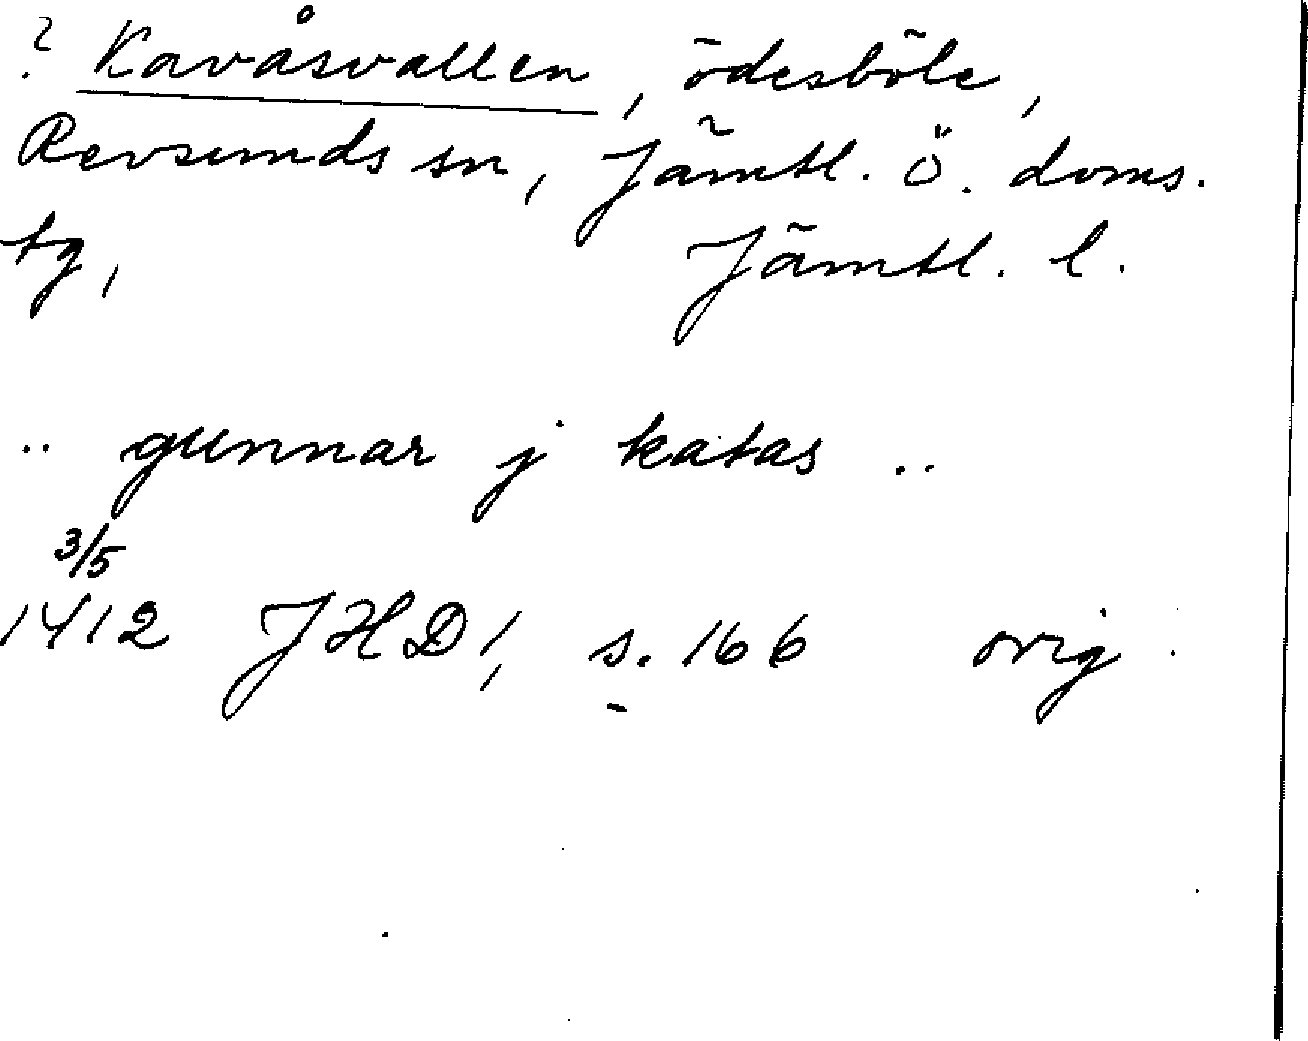 ? Kavåsvallen, ödesböle,
Revsunds sn, Jämtl. ö. doms.
tg, Jämtl. l.
.. gunnar j katas ..
3/5
1412 JHD 1, s. 166 orig